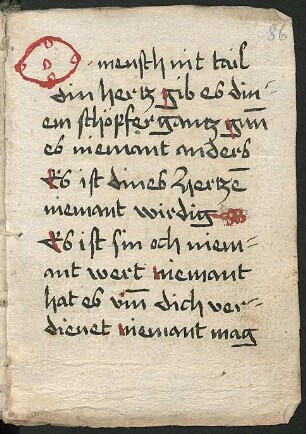 86
O mensch nit tail
din hertz gib es din⸗
em schöpfer gantz gun̄
es niemant anders
Es ist dines hertzē
niemant wirdig
Es ist sin och niem⸗
ant wert niemant
hat es vm̄ dich ver⸗
dienet niemant mag